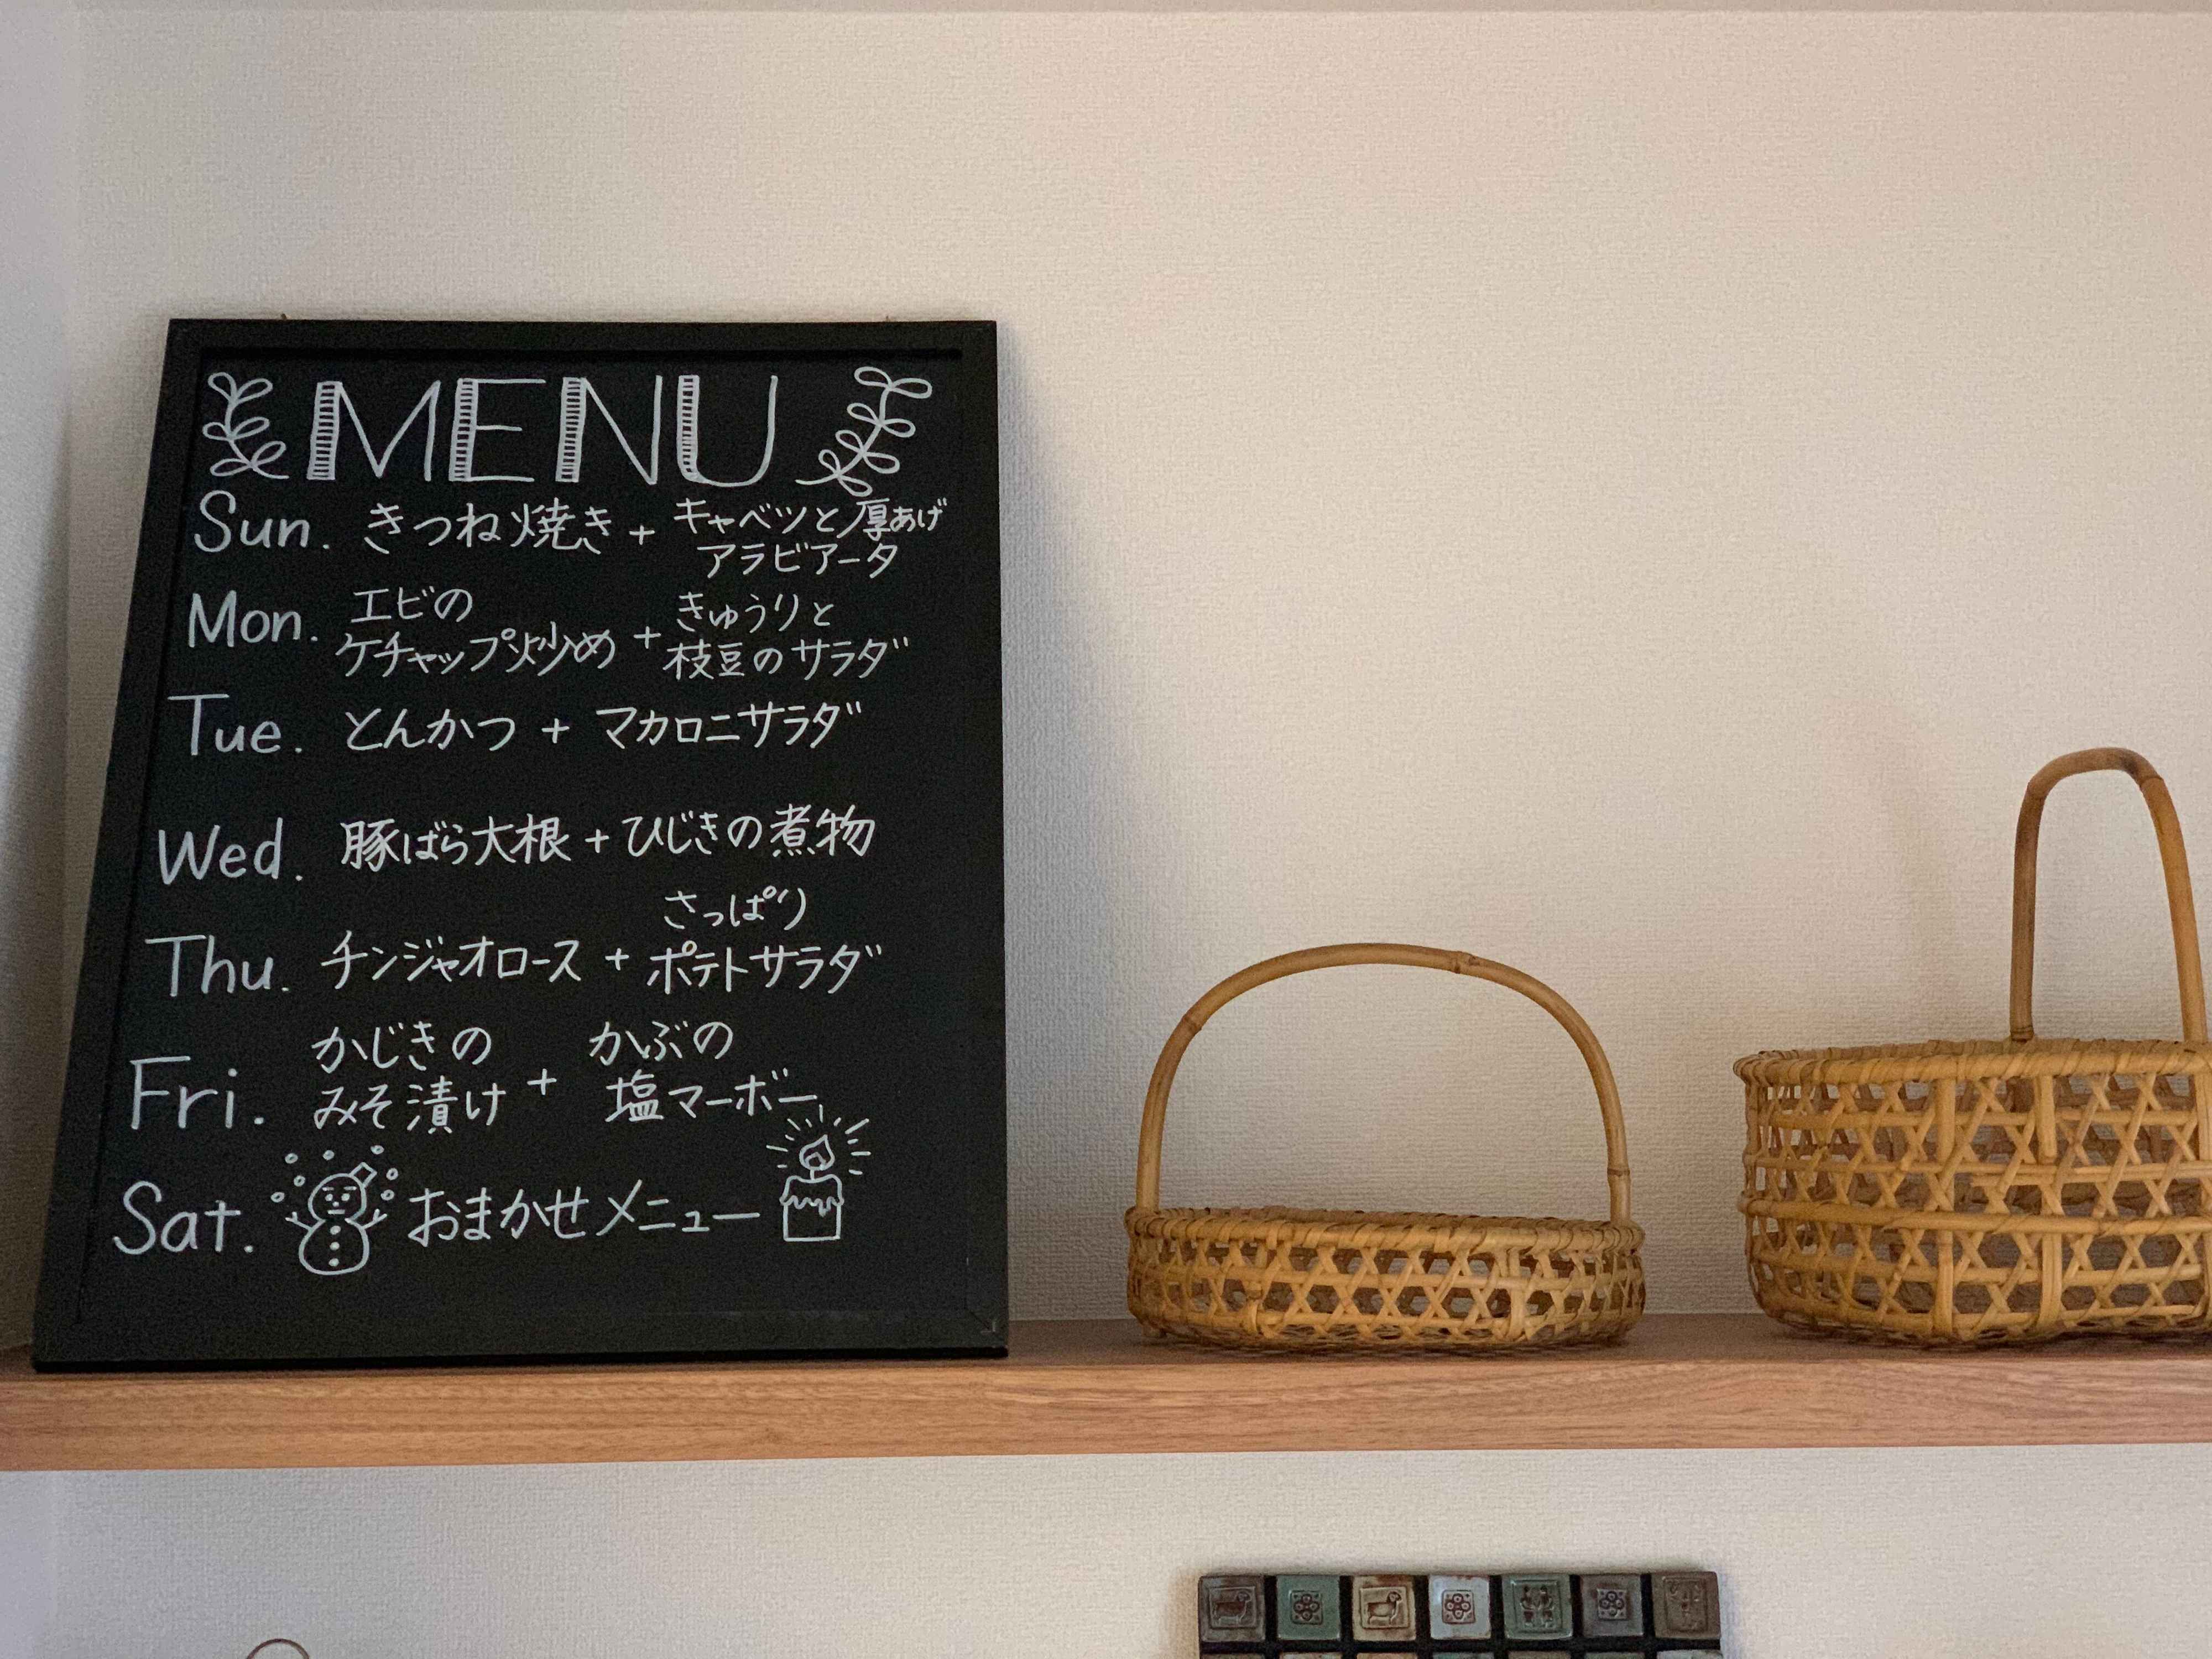 MENU
Sun. きつね焼き + キャベツと厚あげ
アラビアータ
Mon. エビの
ケチャップ炒め + きゅうりと
枝豆のサラダ
Tue. とんかつ + マカロニサラダ
Wed. 豚ばら大根 + ひじきの煮物
Thu. チンジャオロース + さっぱり
ポテトサラダ
Fri. かじきの
みそ漬け + かぶの
塩マーボー
Sat. おまかせメニュー